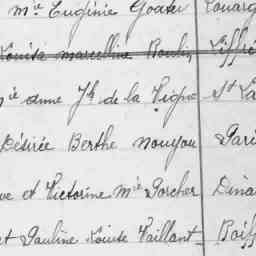 Mie Eugénie Goater Louarg
Louisa marcelline Boulin Liffré
Mie anne Jh de la Vigne St La
Désirée Berthe nouyou Pari
ve et Victorine Mie Porcher Dina
et Pauline Louise Vaillant Boiff